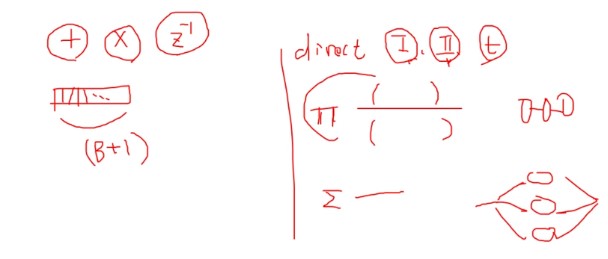 + × z⁻¹
(B+1)
direct I, II, t
π ( ) / ( )
Σ —